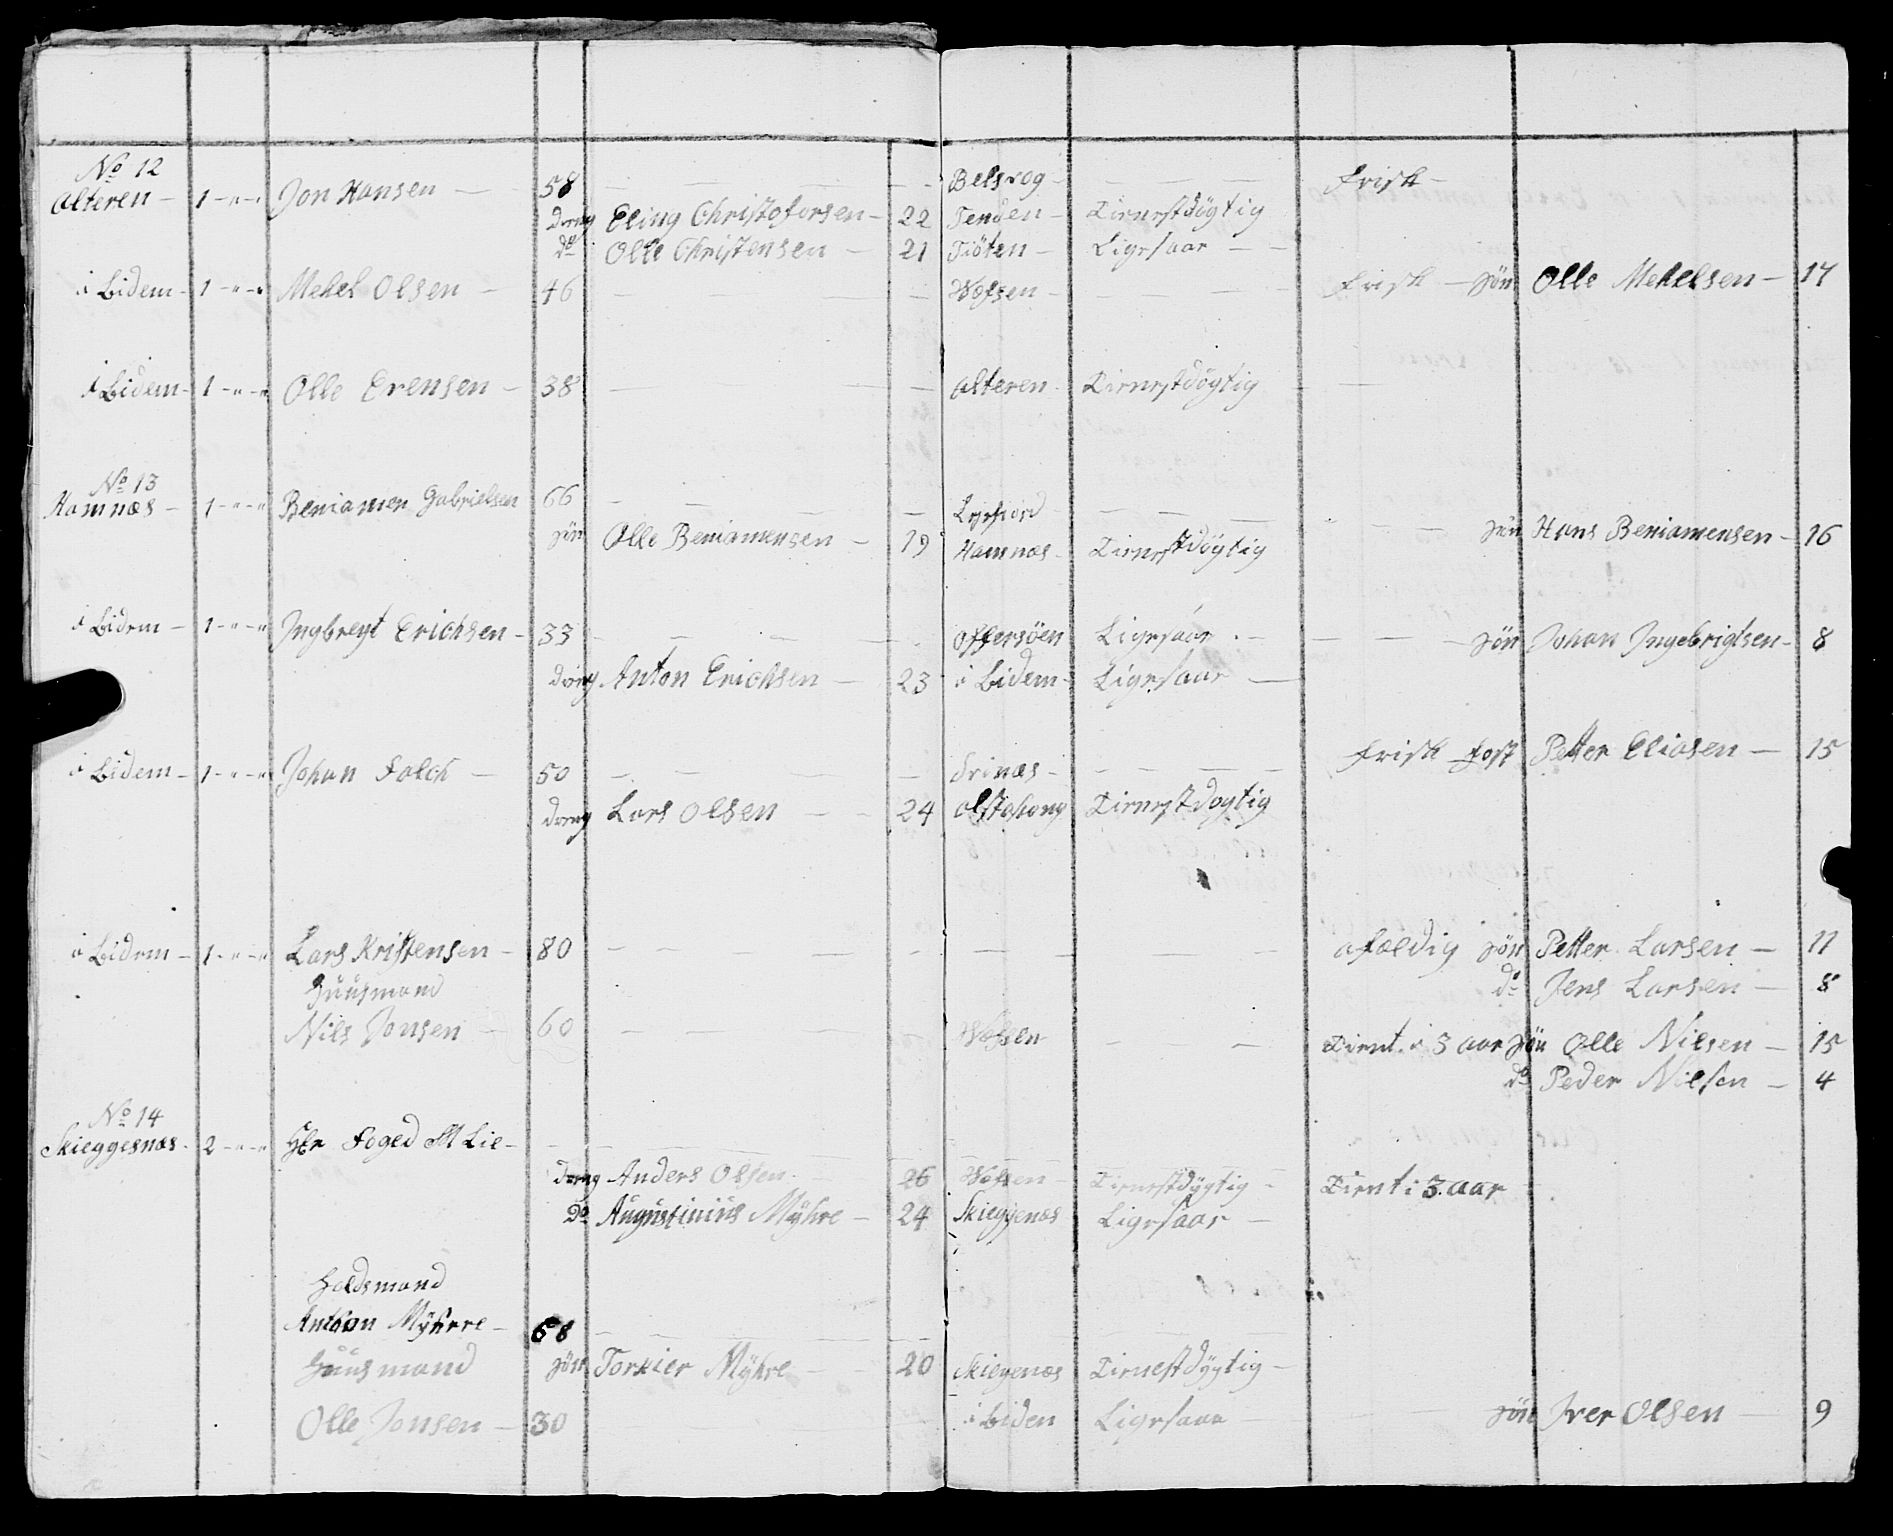 No 12
Alteren - 1 - " - " Jon Hansen - 58 - - - - Belsvog - - - Frisk -
Dreng Eling Christofersen - 22 Tenden - Tienestdögtig
do Olle Christensen - 21 Tiöten - Ligesaa - -
i Bidem - 1 - " - " Mekel Olsen - 46 - - - Wefsen - - - - Frisk - Sön Olle Mekelsen - 17
i Bidem - 1 - " - " Olle Erensen - 38 - - - Alteren - Tienestdögtig - -
No 13
Hamnæs - 1 - " - " Beniamen Gabrielsen 66 - - - - - -
Sön Olle Beniamensen - 19 Hamnæs - Tienestdögtig - - Sön Hans Beniamensen - 16
i Bidem - 1 - " - " Jngbregt Erichsen - 33 - - - - Offersöen Ligesaa - - - - Sön Johan Jngebrigtsen - 8
Dreng Anton Erichsen - 23 i Bidem - Ligesaa -
i Bidem - 1 - " - " Johan Falch - 50 - - - - - - Frisk - Fost Petter Eliasen - 15
Dreng Lars Olsen - - 24 Alstahoug Tienestdögtig
i Bidem - 1 - " - " Lars Kristensen - 80 - - - - - - - - afældig Sön Petter Larsen - 11
do Jens Larsen - 8
Huusmand
Nils Jonsen - 60 - - - - Wefsen - - Tient i 3 aar Sön Olle Nilsen - 15
do Peder Nilsen - 4
No 14
Skieggesnæs - 2 - " - " Hr Foged Lie -
Dreng Anders Olsen - 26 Wefsen - Tienestdygtig - Tient i 3 aar
do Augustinius Mÿhre - 24 Skieggenæs Ligesaa -
Anthon Mÿhre - 68 - - - - -
Huusmand Sön Torkier Mÿhre - - 20 Skiegenæs Tienestdÿgtig -
Olle Jonsen - 30 - - i Biden Ligesaa - - Sön Jver Olsen - 9